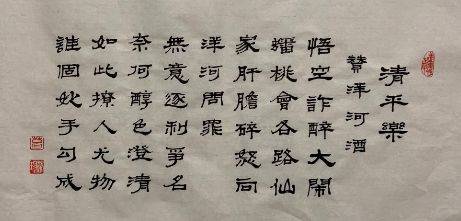 清平樂
贊洋河酒
悟空詐醉大鬧
蟠桃會各路仙
家肝膽碎怒向
洋河問罪
無意逐利爭名
奈何醇色澄清
如此撩人尤物
誰個妙手勾成